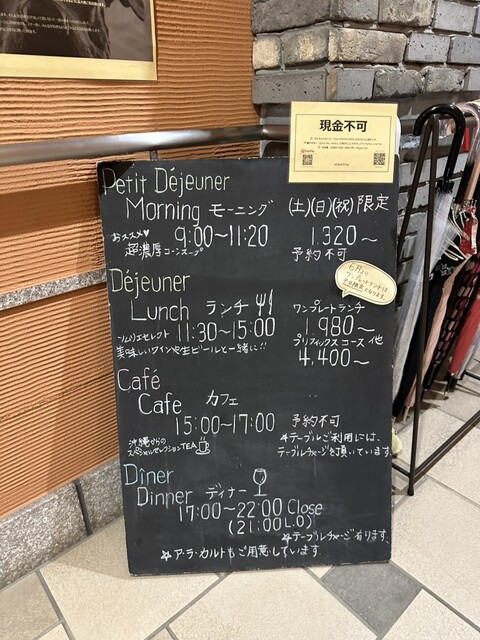 現金不可
Petit Déjeuner
Morning モーニング (土)(日)(祝)限定
おススメ♥ 9:00~11:20 1.320~
超濃厚コーンスープ 予約不可
Déjeuner
6月より
ワンプレートランチは
平日限定となります。
Lunch ランチ ワンプレートランチ
ソムリエセレクト 11:30~15:00 1.980~
美味しいワインや生ビールと一緒に!! プリフィックスコース 他
4,400~
Café
Cafe カフェ
15:00~17:00 予約不可
沖縄からの
スペシャルセレクションTEA
☆テーブルご利用には、
テーブルチャージを頂いています。
Dîner
Dinner ディナー
17:00~22:00 Close
(21:00 L.O)
☆テーブルチャージ有ります。
☆ア・ラ・カルトもご用意しています。